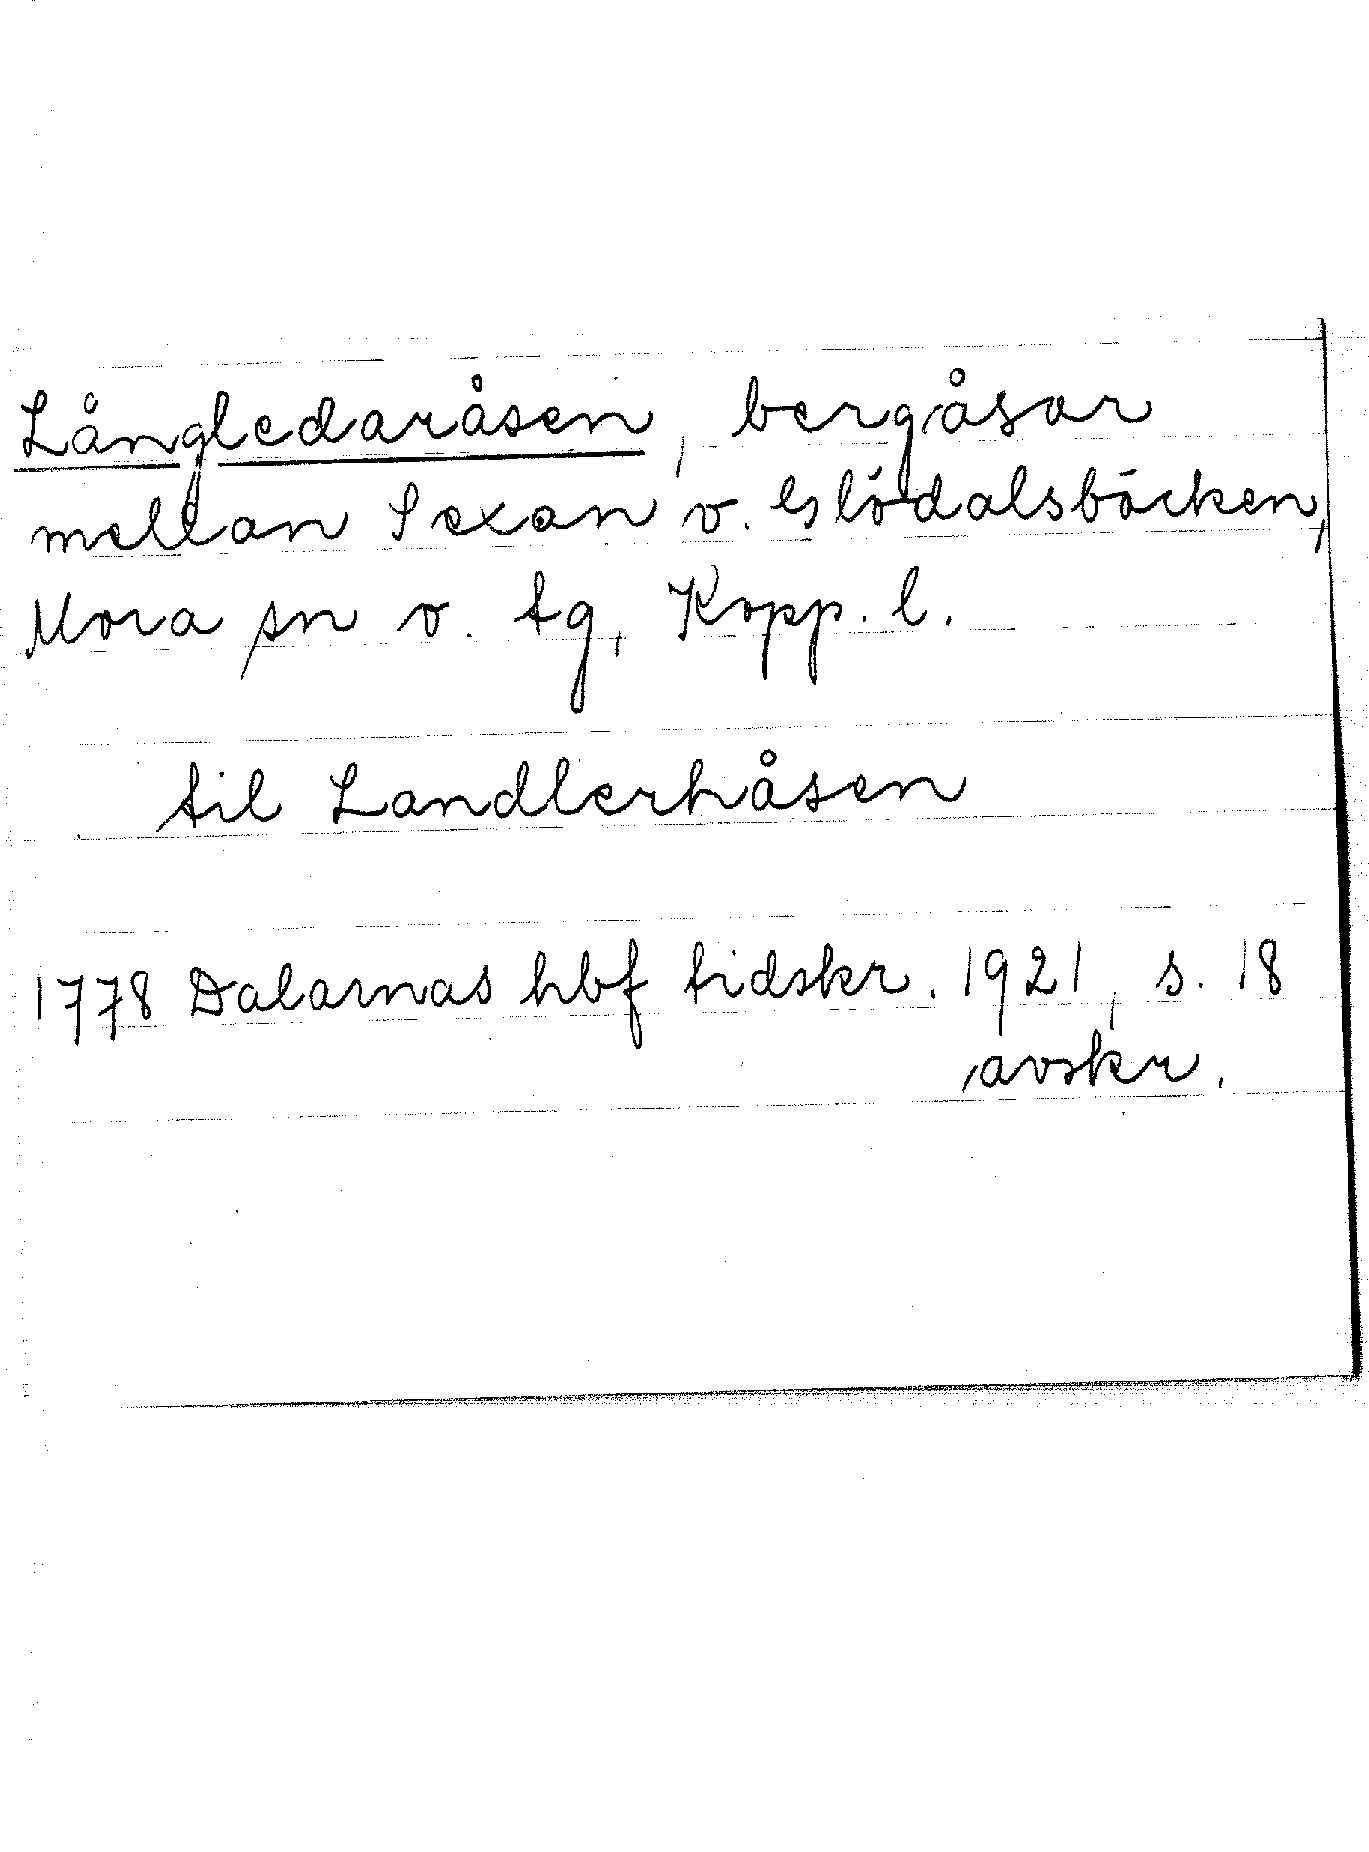 Långledaråsen, bergåsar
mellan Sexan o. Glödalsbäcken,
Mora sn o. tg, Kopp. l.
til Landlerhåsen
1778 Dalarnas hbf tidskr. 1921, s. 18
avskr.